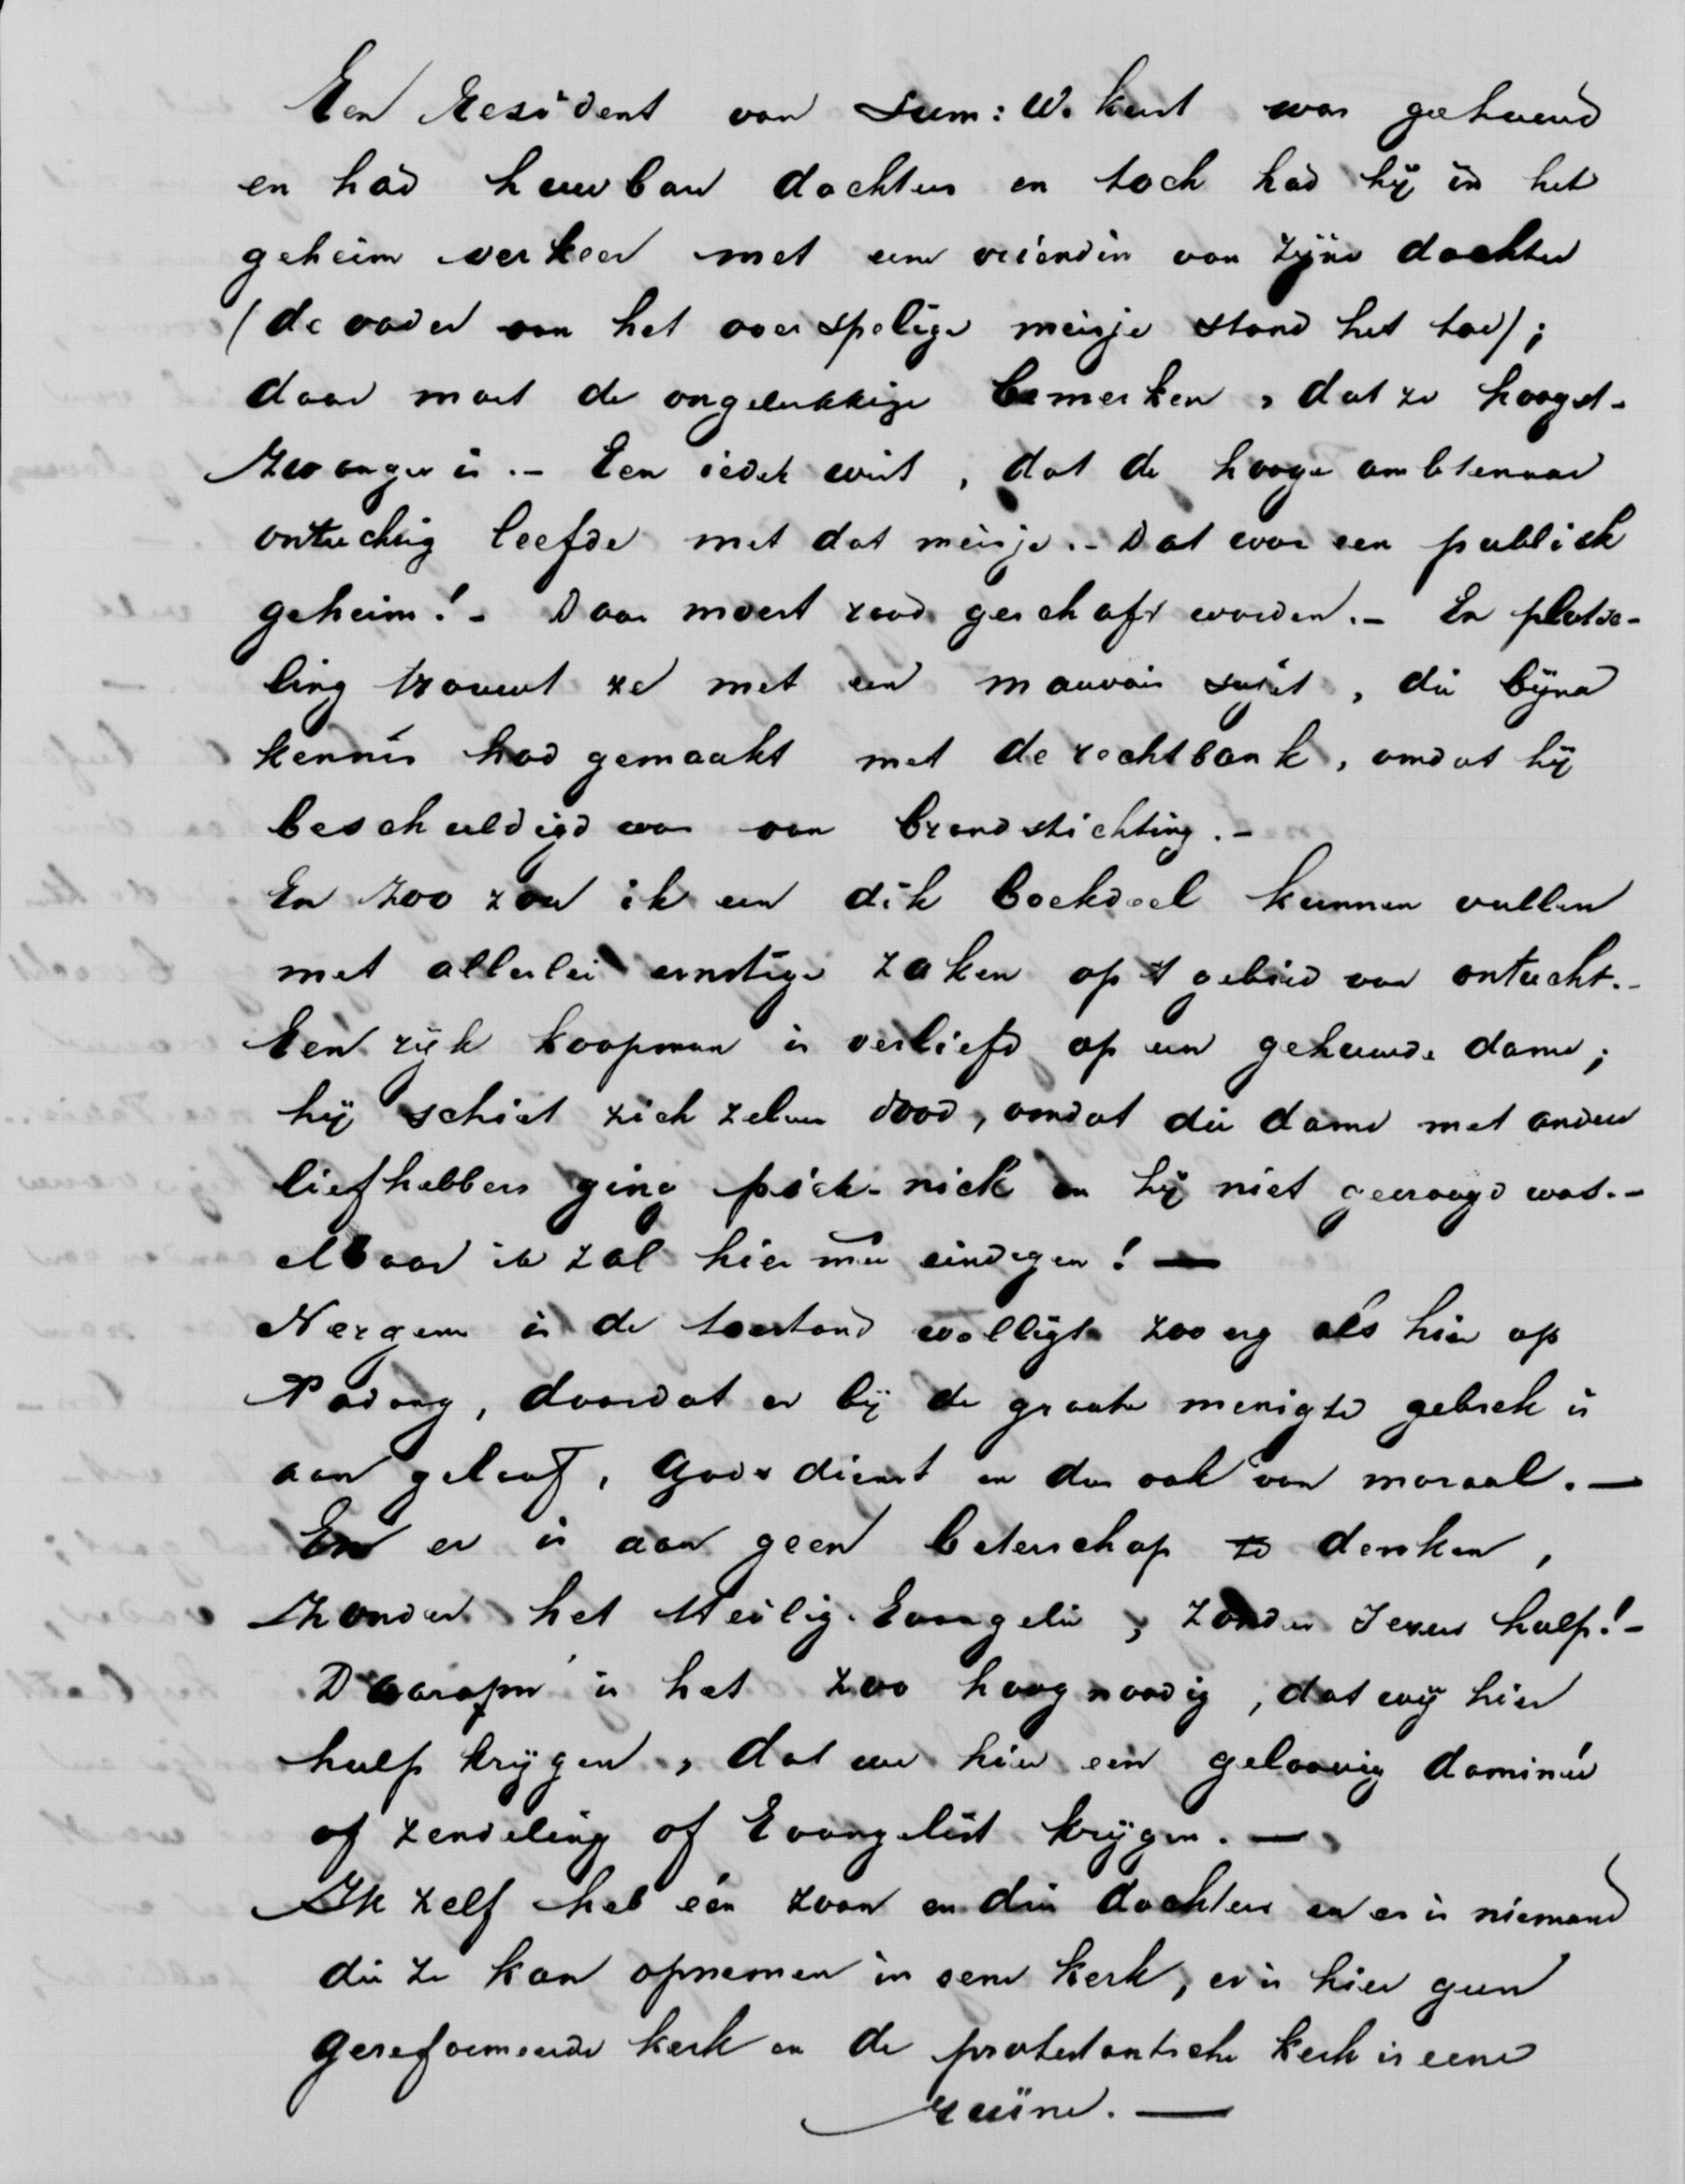 Een Resident van Sum: W. kust was gehuwd
en had huwbare dochters en toch had hij in het
geheim verkeer met eene vriendin van zijne dochter
(de vader van het overspelige meisje stond het toe);
daar moet de ongelukkige bemerken, dat ze hoogst-
zwanger is. - Een ieder wist, dat de hooge ambtenaar
ontuchtig leefde met dat meisje. - Dat was een publiek
geheim! - Daar moest raad geschaft worden. - En plotse-
ling trouwt ze met een mauvais sujet, die bijna
kennis had gemaakt met de rechtbank, omdat hij
beschuldigd was van brandstichting. -
En zoo zou ik een dik boekdeel kunnen vullen
met allerlei ernstige zaken op 't gebied van ontucht. -
Een rijk koopman is verliefd op een gehuwde dame;
hij schiet zich zelven dood, omdat die dame met andere
liefhebbers ging pick-nick en hij niet gevraagd was. -
Maar ik zal hier mee eindigen! —
Nergens is de toestand wellight zoo erg als hier op
Padang, doordat er bij de groote menigte gebrek is
aan geloof, Godsdienst en dus ook van moraal. —
En er is aan geen beterschap te denken,
zonder het Heilig Evangelie, zonder Jezus hulp! -
Daarom is het zoo hoog noodig, dat wij hier
hulp krijgen, dat we hier een geloovig dominée
of zendeling of Evangelist krijgen. —
Ik zelf heb één zoon en drie dochters en er is niemand
die ze kan opnemen in eene kerk, er is hier geen
gereformeerde kerk en de protestantsche kerk is eene
ruïne. —